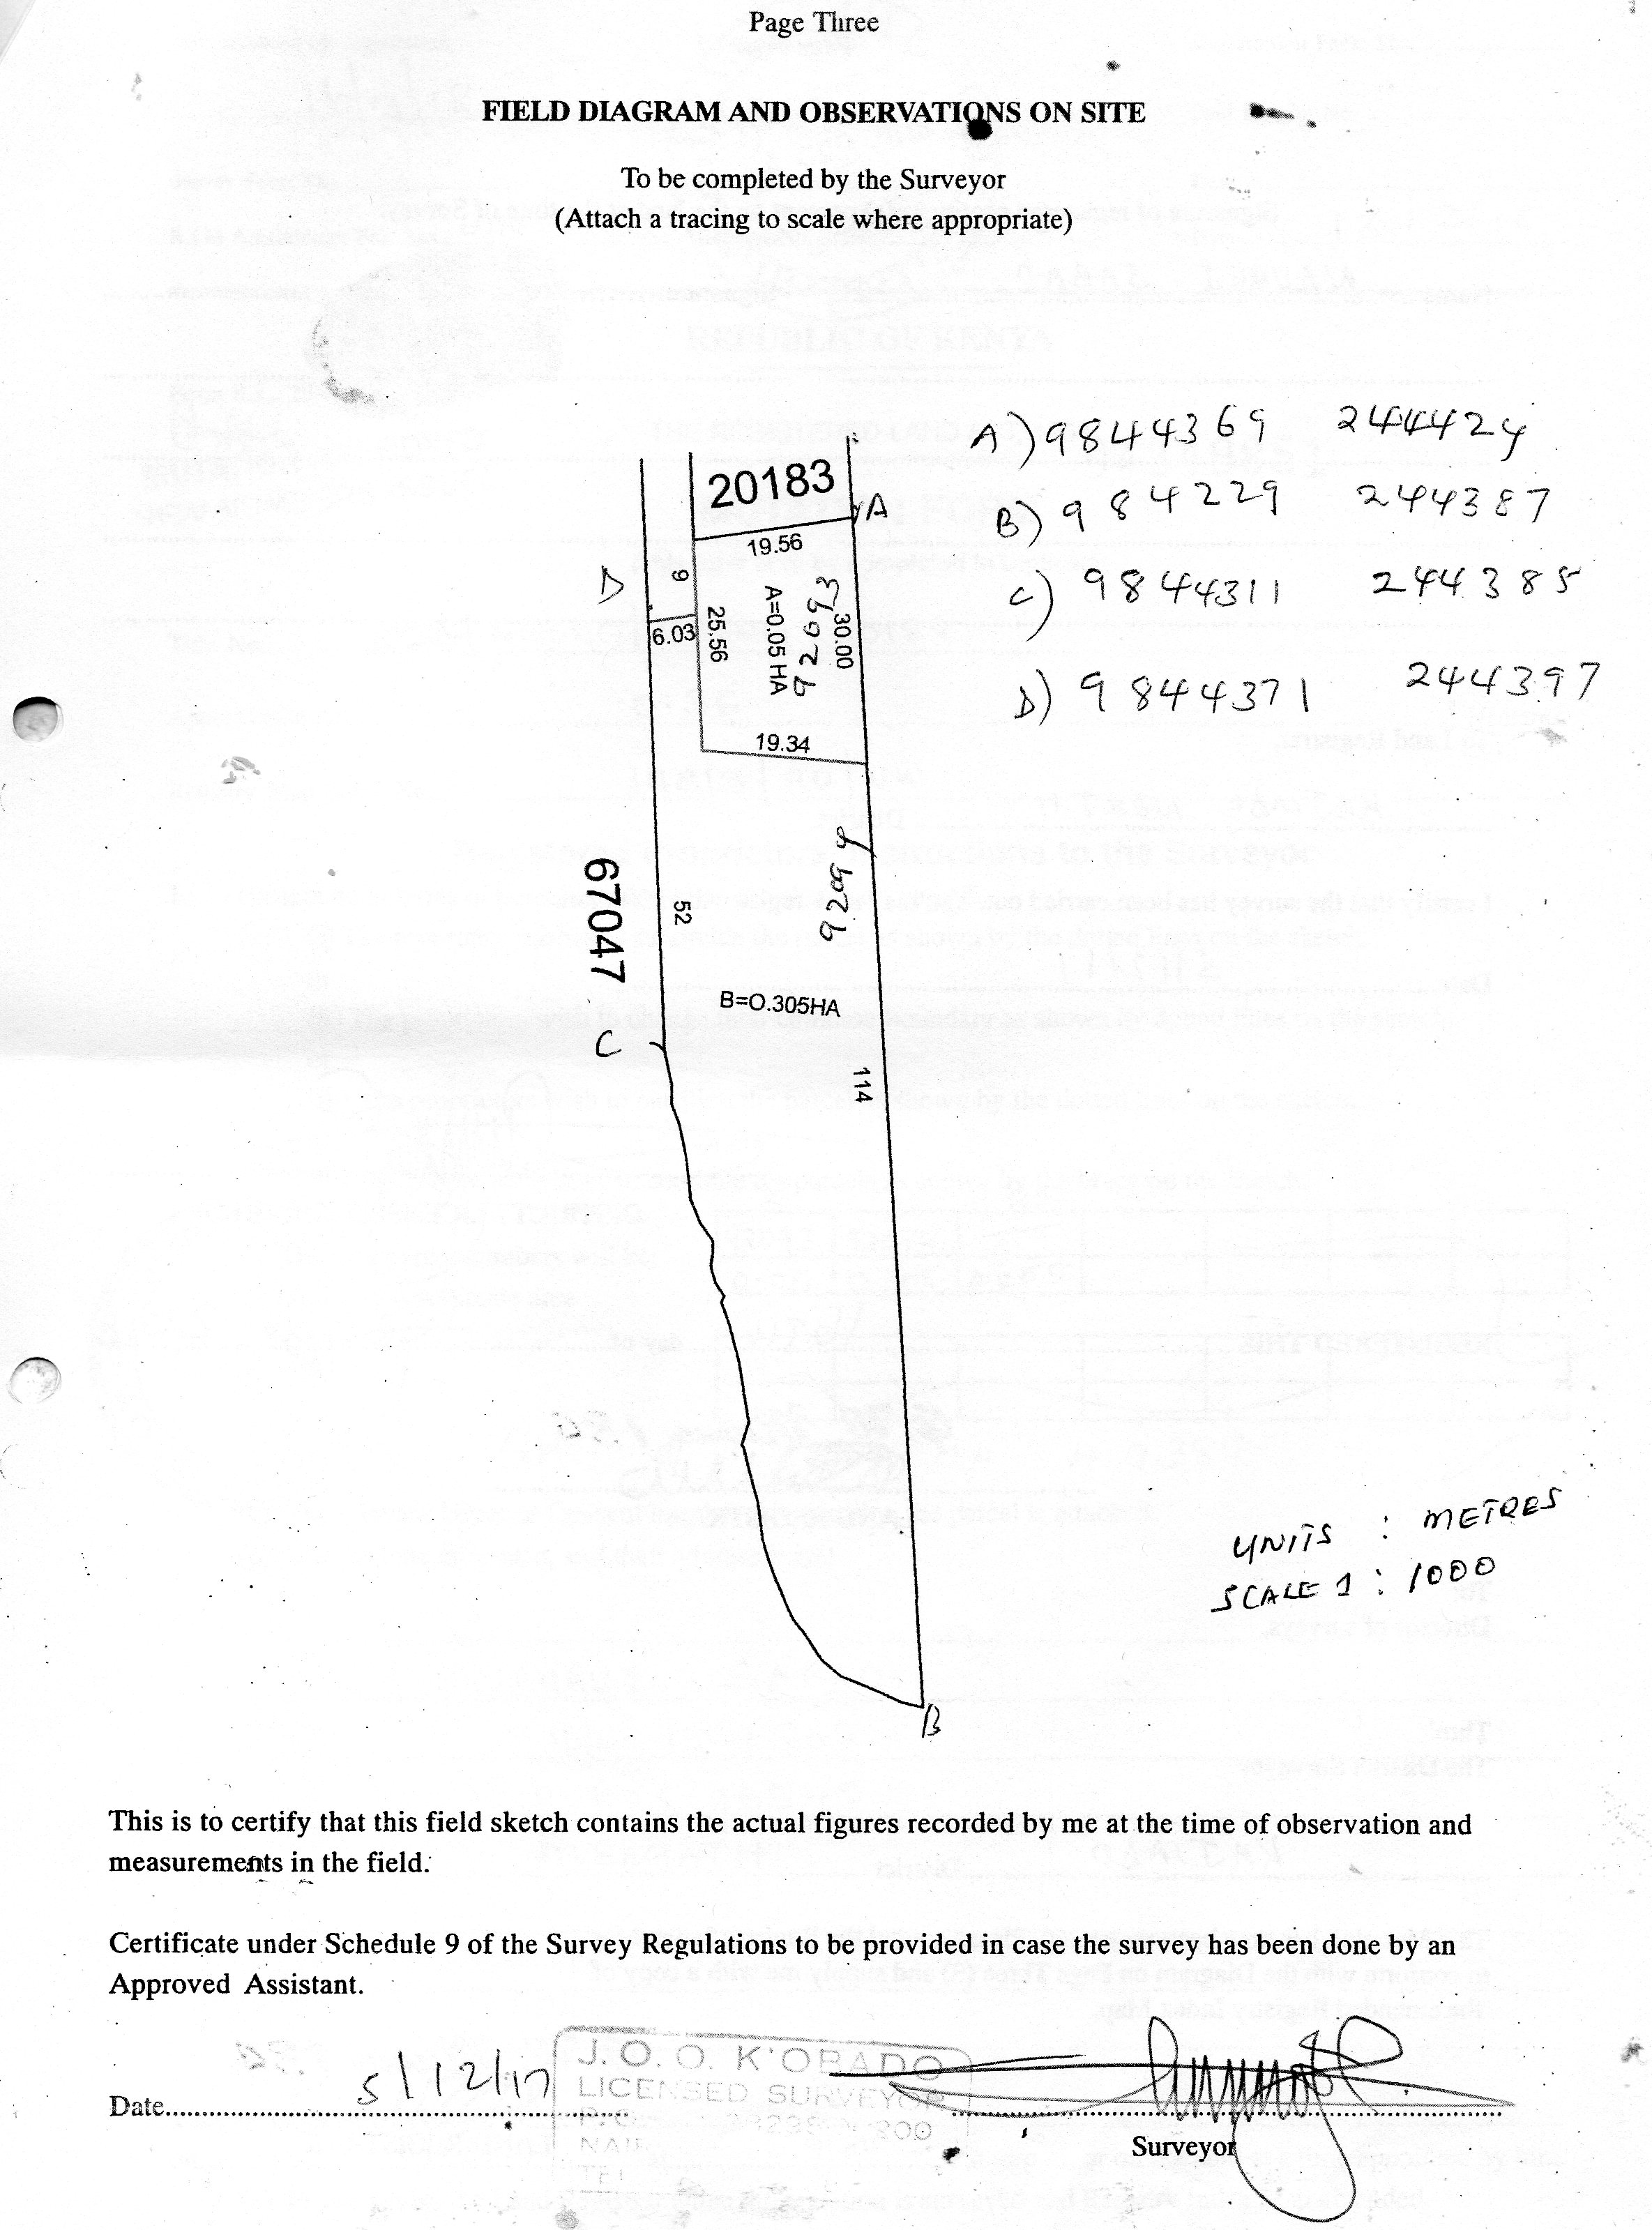 Page Three
FIELD DIAGRAM AND OBSERVATIONS ON SITE
To be completed by the Surveyor
(Attach a tracing to scale where appropriate)
A) 9844369 244424
B) 984229 244387
C) 9844311 244385
D) 9844371 244397
20183
A
19.56
D
9
6.03
25.56
A=0.05 HA
92093
30.00
19.34
92094
67047
52
B=0.305HA
C
114
B
UNITS : METRES
SCALE 1 : 1000
This is to certify that this field sketch contains the actual figures recorded by me at the time of observation and
measurements in the field.
Certificate under Schedule 9 of the Survey Regulations to be provided in case the survey has been done by an
Approved Assistant.
J. O. O. K'OBADO
LICENSED SURVEYOR
Date 5/12/17
Surveyor